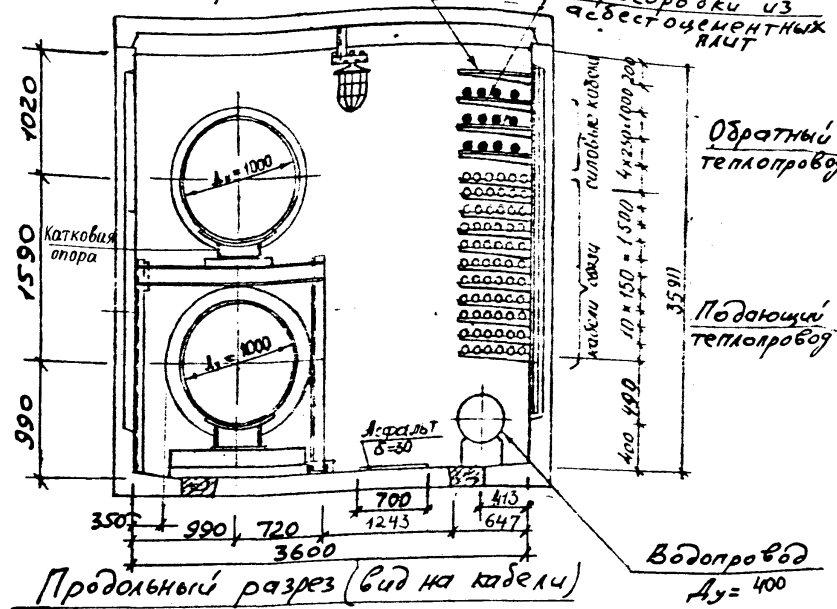 из
асбестоцементных
плит
1020
1590
990
Ду = 1000
Катковая
опора
Ду = 1000
Асфальт
δ=30
силовые кабели
кабели связи
200
4×250=1000
10×150=1500
490
400
Обратный
теплопровод
Подающий
теплопровод
350
990
720
700
1243
413
647
3600
Водопровод
Ду= 400
Продольный разрез (вид на кабели)